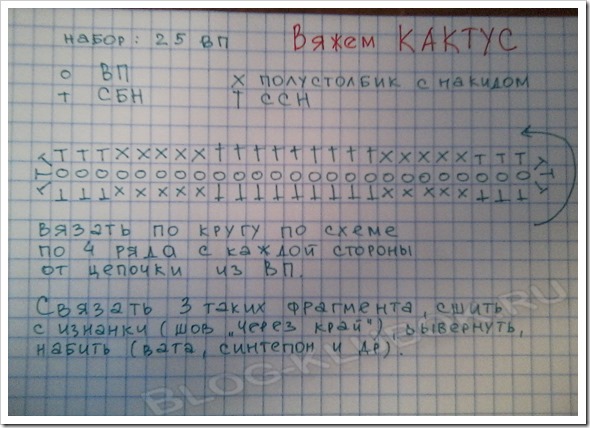 Вяжем КАКТУС
НАБОР: 25 ВП
о ВП
х ПОЛУСТОЛБИК С НАКИДОМ
+ СБН
† ССН
ВЯЗАТЬ ПО КРУГУ ПО СХЕМЕ
ПО 4 РЯДА С КАЖДОЙ СТОРОНЫ
ОТ ЦЕПОЧКИ ИЗ ВП.
СВЯЗАТЬ 3 ТАКИХ ФРАГМЕНТА, СШИТЬ
С ИЗНАНКИ (ШОВ „ЧЕРЕЗ КРАЙ"), ВЫВЕРНУТЬ,
НАБИТЬ (ВАТА, СИНТЕПОН И ДР).